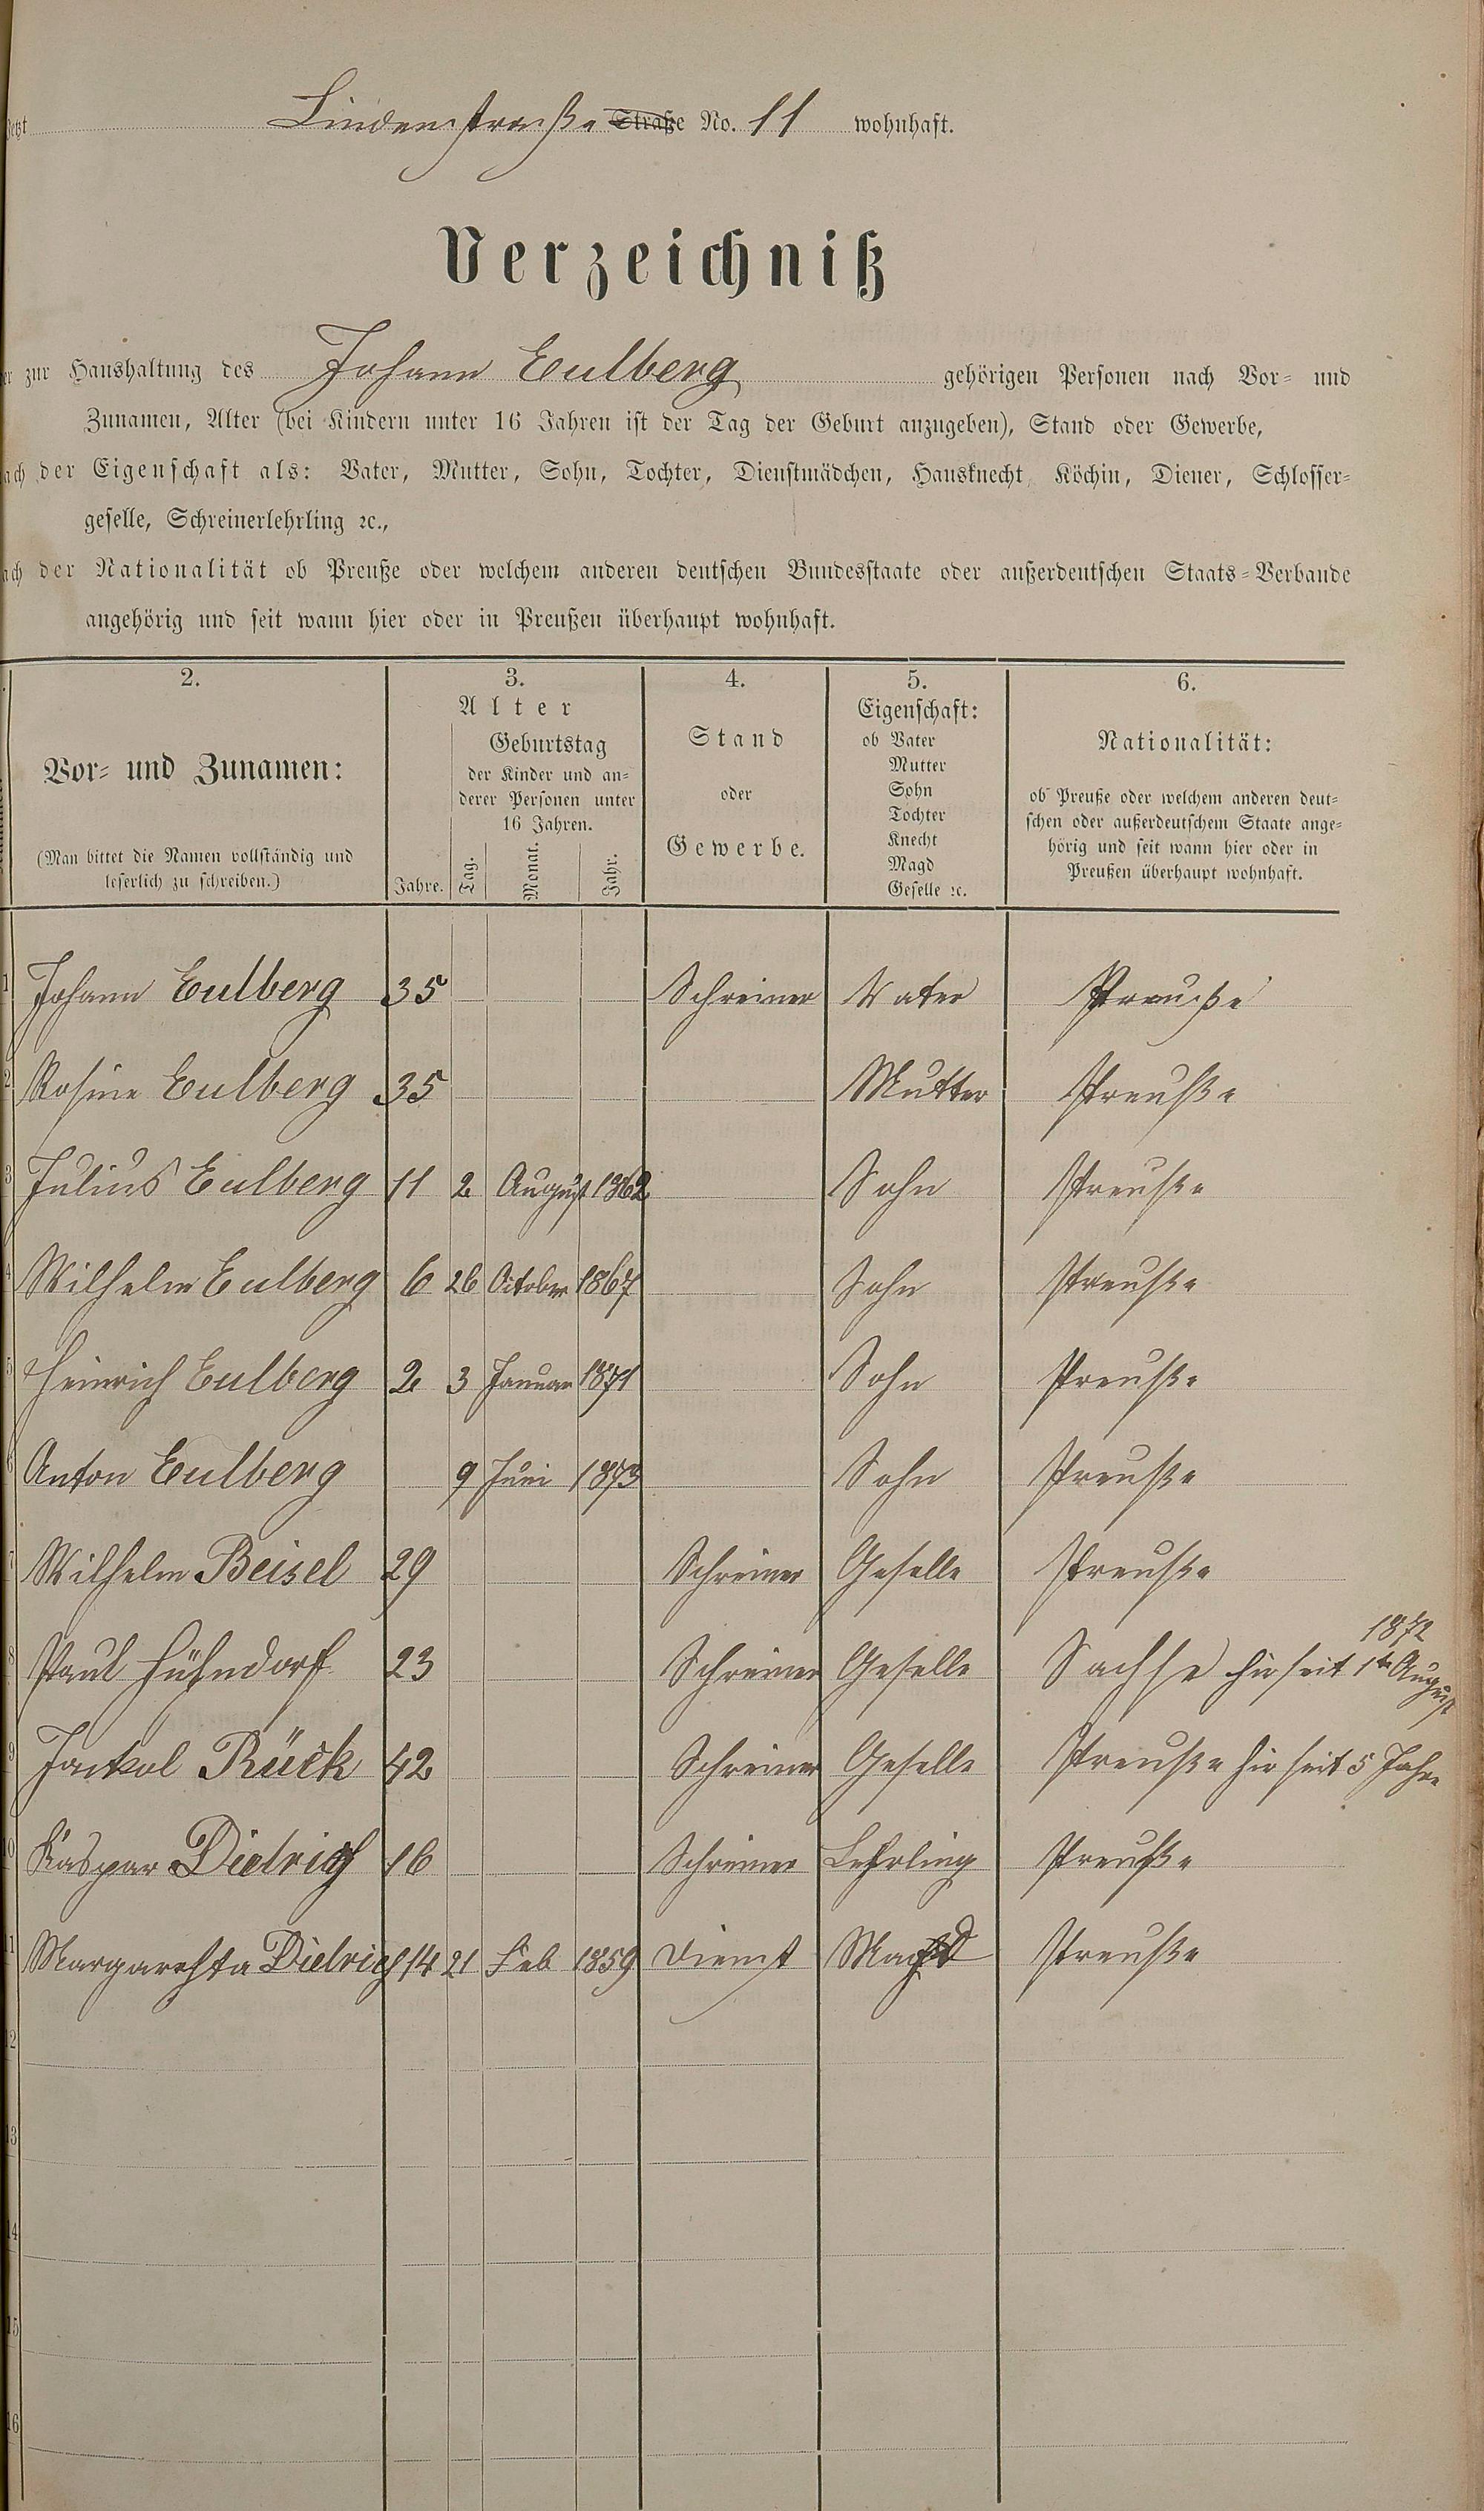 jetzt Lindenstraße Straße No. 11 wohnhaft.
Verzeichniß
er zur Haushaltung des Johann Eulberg gehörigen Personen nach Vor- und
Zunamen, Alter (bei Kindern unter 16 Jahren ist der Tag der Geburt anzugeben), Stand oder Gewerbe,
ach der Eigenschaft als: Vater, Mutter, Sohn, Tochter, Dienstmädchen, Hausknecht, Köchin, Diener, Schlosser-
geselle, Schreinerlehrling ꝛc.,
ach der Nationalität ob Preuße oder welchem anderen deutschen Bundesstaate oder außerdeutschen Staats-Verbande
angehörig und seit wann hier oder in Preußen überhaupt wohnhaft.
2. 3. 4. 5. 6.
Vor- und Zunamen:
(Man bittet die Namen vollständig und
leserlich zu schreiben.)
Alter
Geburtstag
der Kinder und an-
derer Personen unter
16 Jahren.
Jahre. Tag. Monat. Jahr.
Stand
oder
Gewerbe.
Eigenschaft:
ob Vater
Mutter
Sohn
Tochter
Knecht
Magd
Geselle ꝛc.
Nationalität:
ob Preuße oder welchem anderen deut-
schen oder außerdeutschem Staate ange-
hörig und seit wann hier oder in
Preußen überhaupt wohnhaft.
1 Johann Eulberg 35 Schreiner Vater Preuße
2 Rosine Eulberg 35 Mutter Preuße
3 Julius Eulberg 11 2 August 1862 Sohn Preuße
4 Wilhelm Eulberg 6 26 October 1867 Sohn Preuße
5 Heinrich Eulberg 2 3 Januar 1871 Sohn Preuße
6 Anton Eulberg 9 Juni 1873 Sohn Preuße
7 Wilhelm Beisel 29 Schreiner Geselle Preuße
1872
8 Paul Hühndorf 23 Schreiner Geselle Sachse hir seit 1te August
9 Jackol Rück 42 Schreiner Geselle Preuße hir seit 5 Jahre
10 Kaspar Dietrich 16 Schreiner Lehrling Preuße
11 Margarehta Dietrich 14 21 Feb 1859 Dienst Magd Preuße
12
13
14
15
16